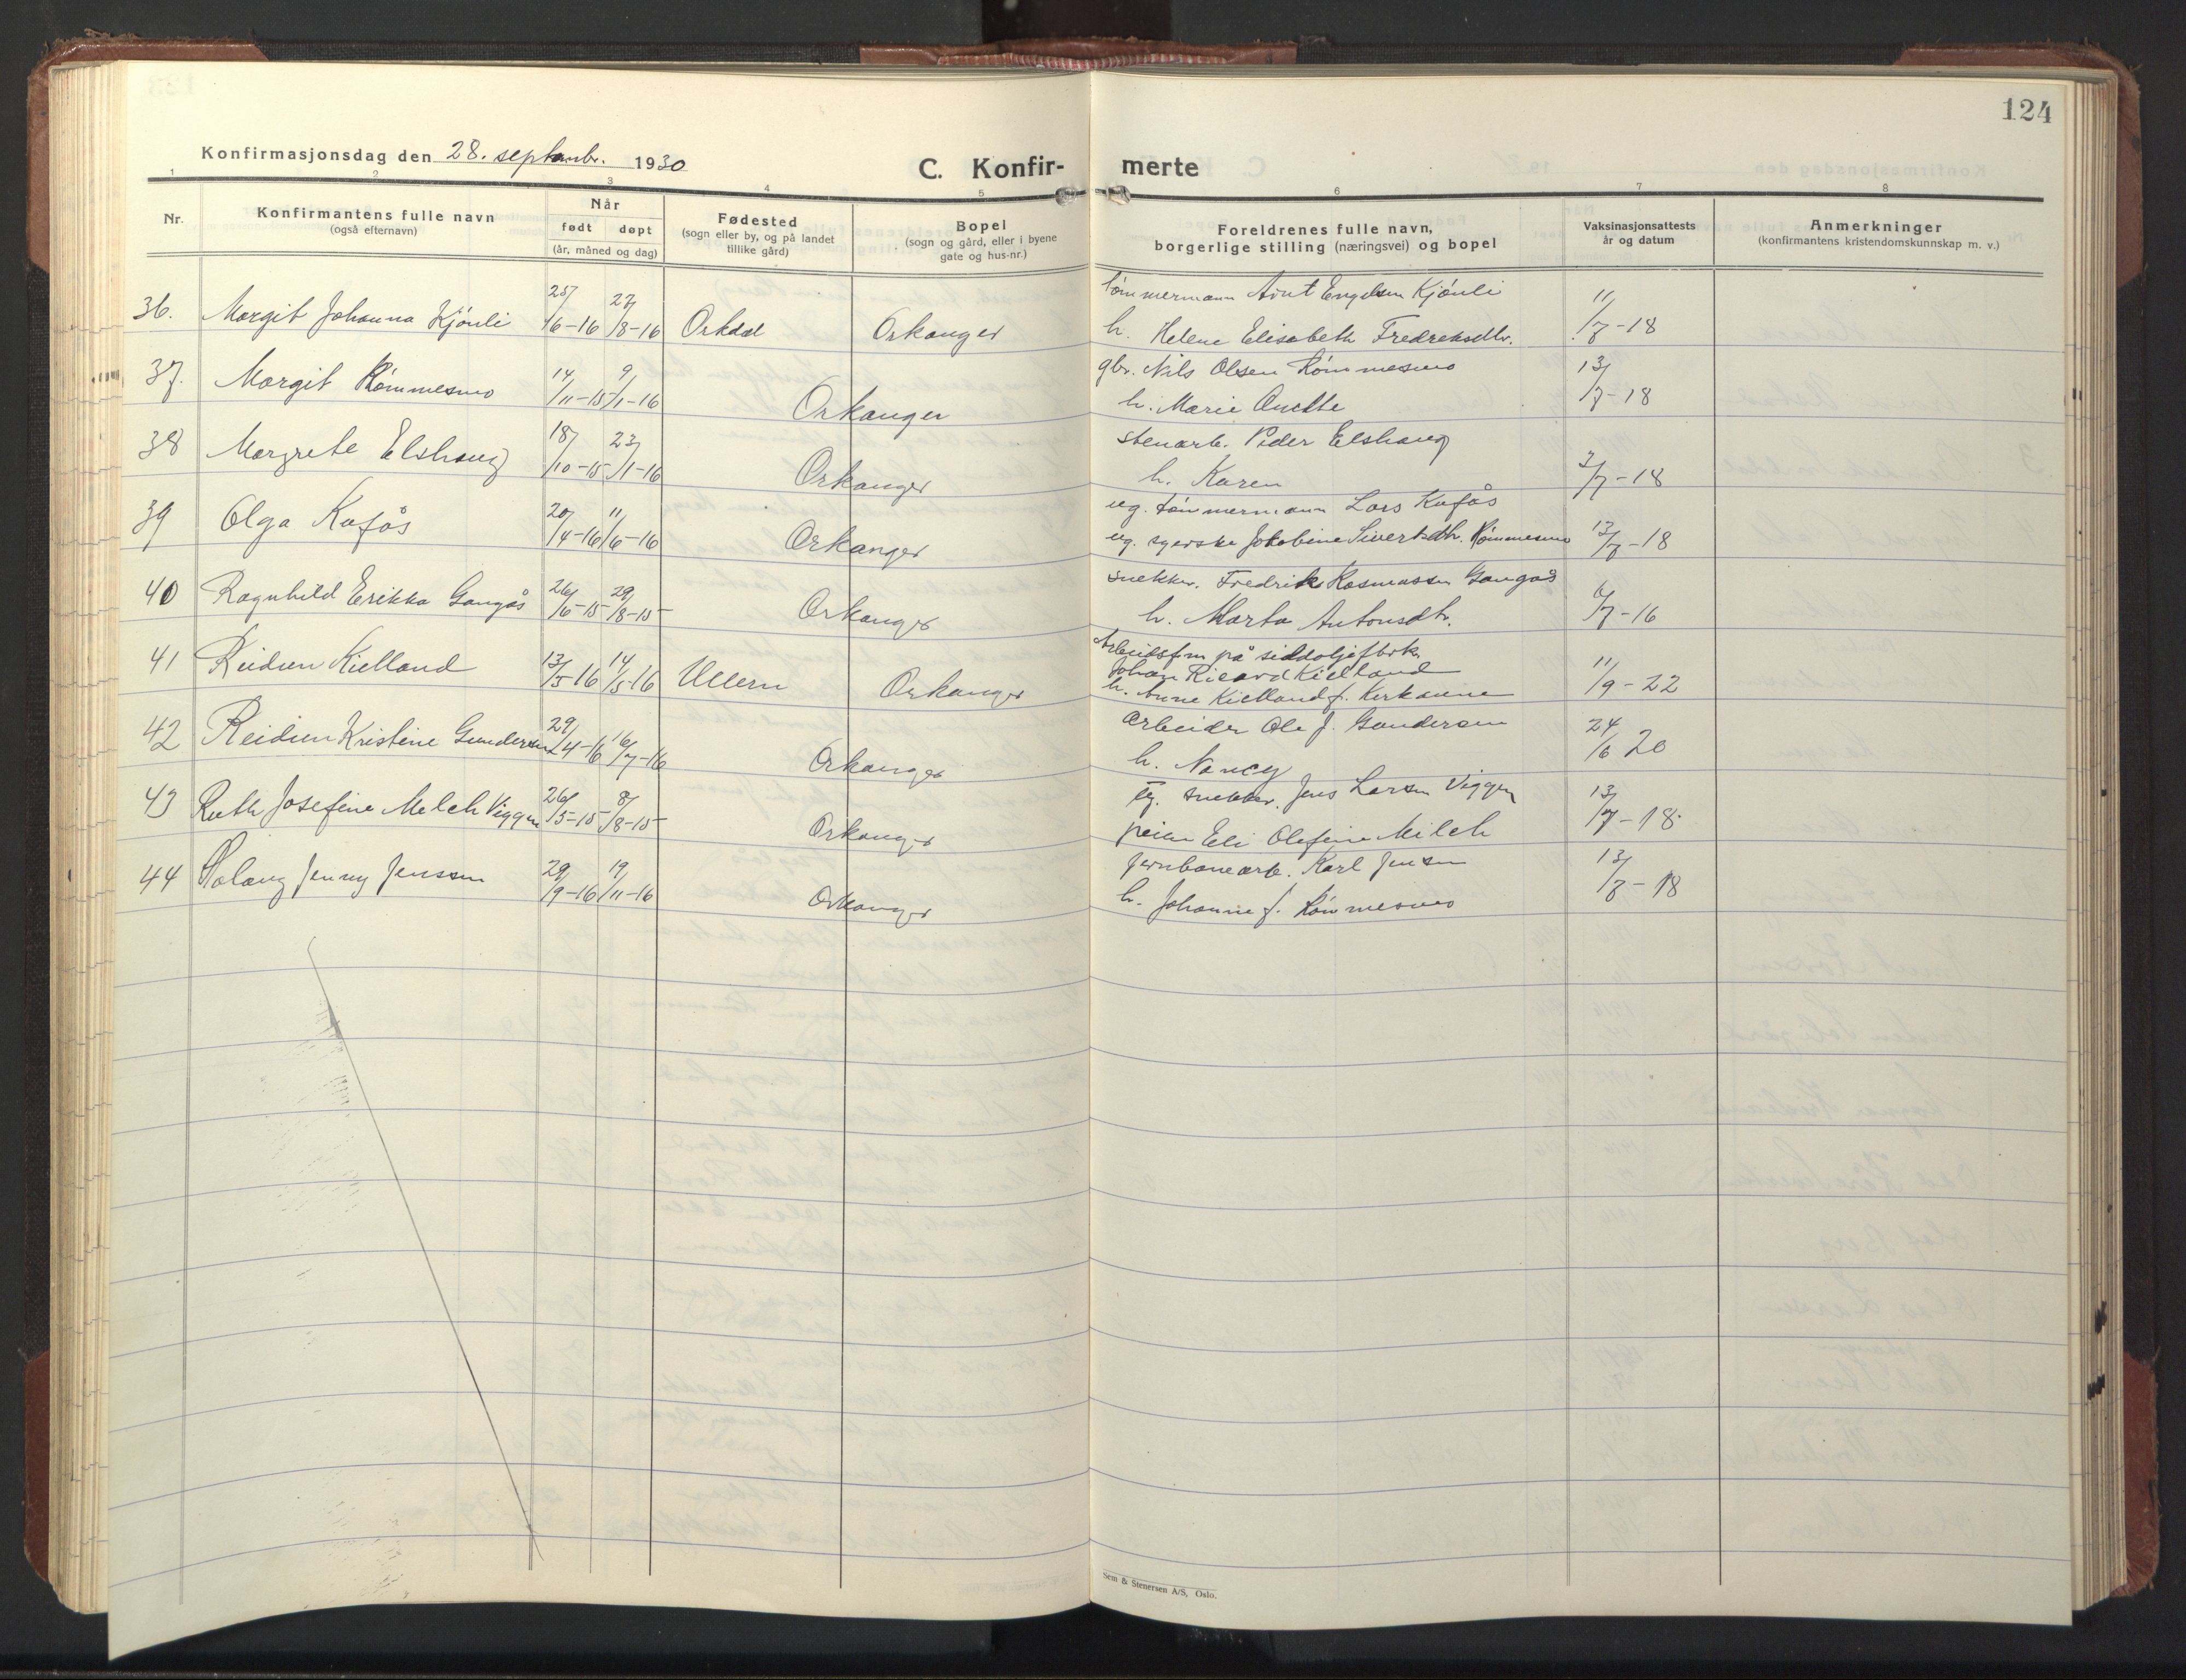 124
Konfirmasjonsdag den 28. septembr. 1930
C. Konfir- merte
1 2 3 4 5 6 7 8
Nr.
Konfirmantens fulle navn
(også efternavn)
Når
født døpt
(år, måned og dag)
Fødested
(sogn eller by, og på landet
tillike gård)
Bopel
(sogn og gård, eller i byene
gate og hus-nr.)
Foreldrenes fulle navn,
borgerlige stilling (næringsvei) og bopel
Vaksinasjonsattests
år og datum
Anmerkninger
(konfirmantens kristendomskunnskap m. v.)
tømmermann Arnt Engelsen Kjønli
36. Margit Johanna Kjønli 25/6-16 27/8-16 Orkdal Orkanger h. Helene Elisabeth Fredreksdtr. 11/7-18
gbr. Nils Olsen Rømmesmo
37. Margit Rømmesmo 14/11-15 9/1-16 Orkanger h. Marie Anette 13/7-18
stenarb. Peder Elshaug
38 Margrete Elshaug 18/10-15 23/1-16 Orkanger h. Karen 3/7-18
ug. tømmermann Lars Kufås
39 Olga Kufås 20/4-16 11/6-16 Orkanger ug. syerske Jakobine Sivertsdtr. Rømmesmo 13/7-18
snekker. Fredrik Rasmussen Gangås
40 Ragnhild Erikka Gangås 26/6-15 29/8-15 Orkanger h. Marta Antonsdtr. 6/7-16
Arbeidsfm på sildoljefbrk.
Johan Ricard Kielland
41 Reidun Kielland 13/5-16 14/5-16 Ullern Orkanger h. Anne Kielland f. Kirkaune 11/9-22
arbeider Ole J. Gundersen
42 Reidun Kristine Gundersen 29/4-16 16/7-16 Orkanger h. Nancy 24/6 20
Ug. snekker. Jens Larsen Viggen
43 Ruth Josefine Melch Viggen 26/5-15 8/8-15 Orkanger peike Eli Olefine Milch 13/7-18
jernbanearb. Karl Jensen
44 Solaug Jenny Jenssen 29/9-16 19/11-16 Orkanger h. Johanne f. Rømmesmo 13/7-18
Sem & Stenersen A/S, Oslo.